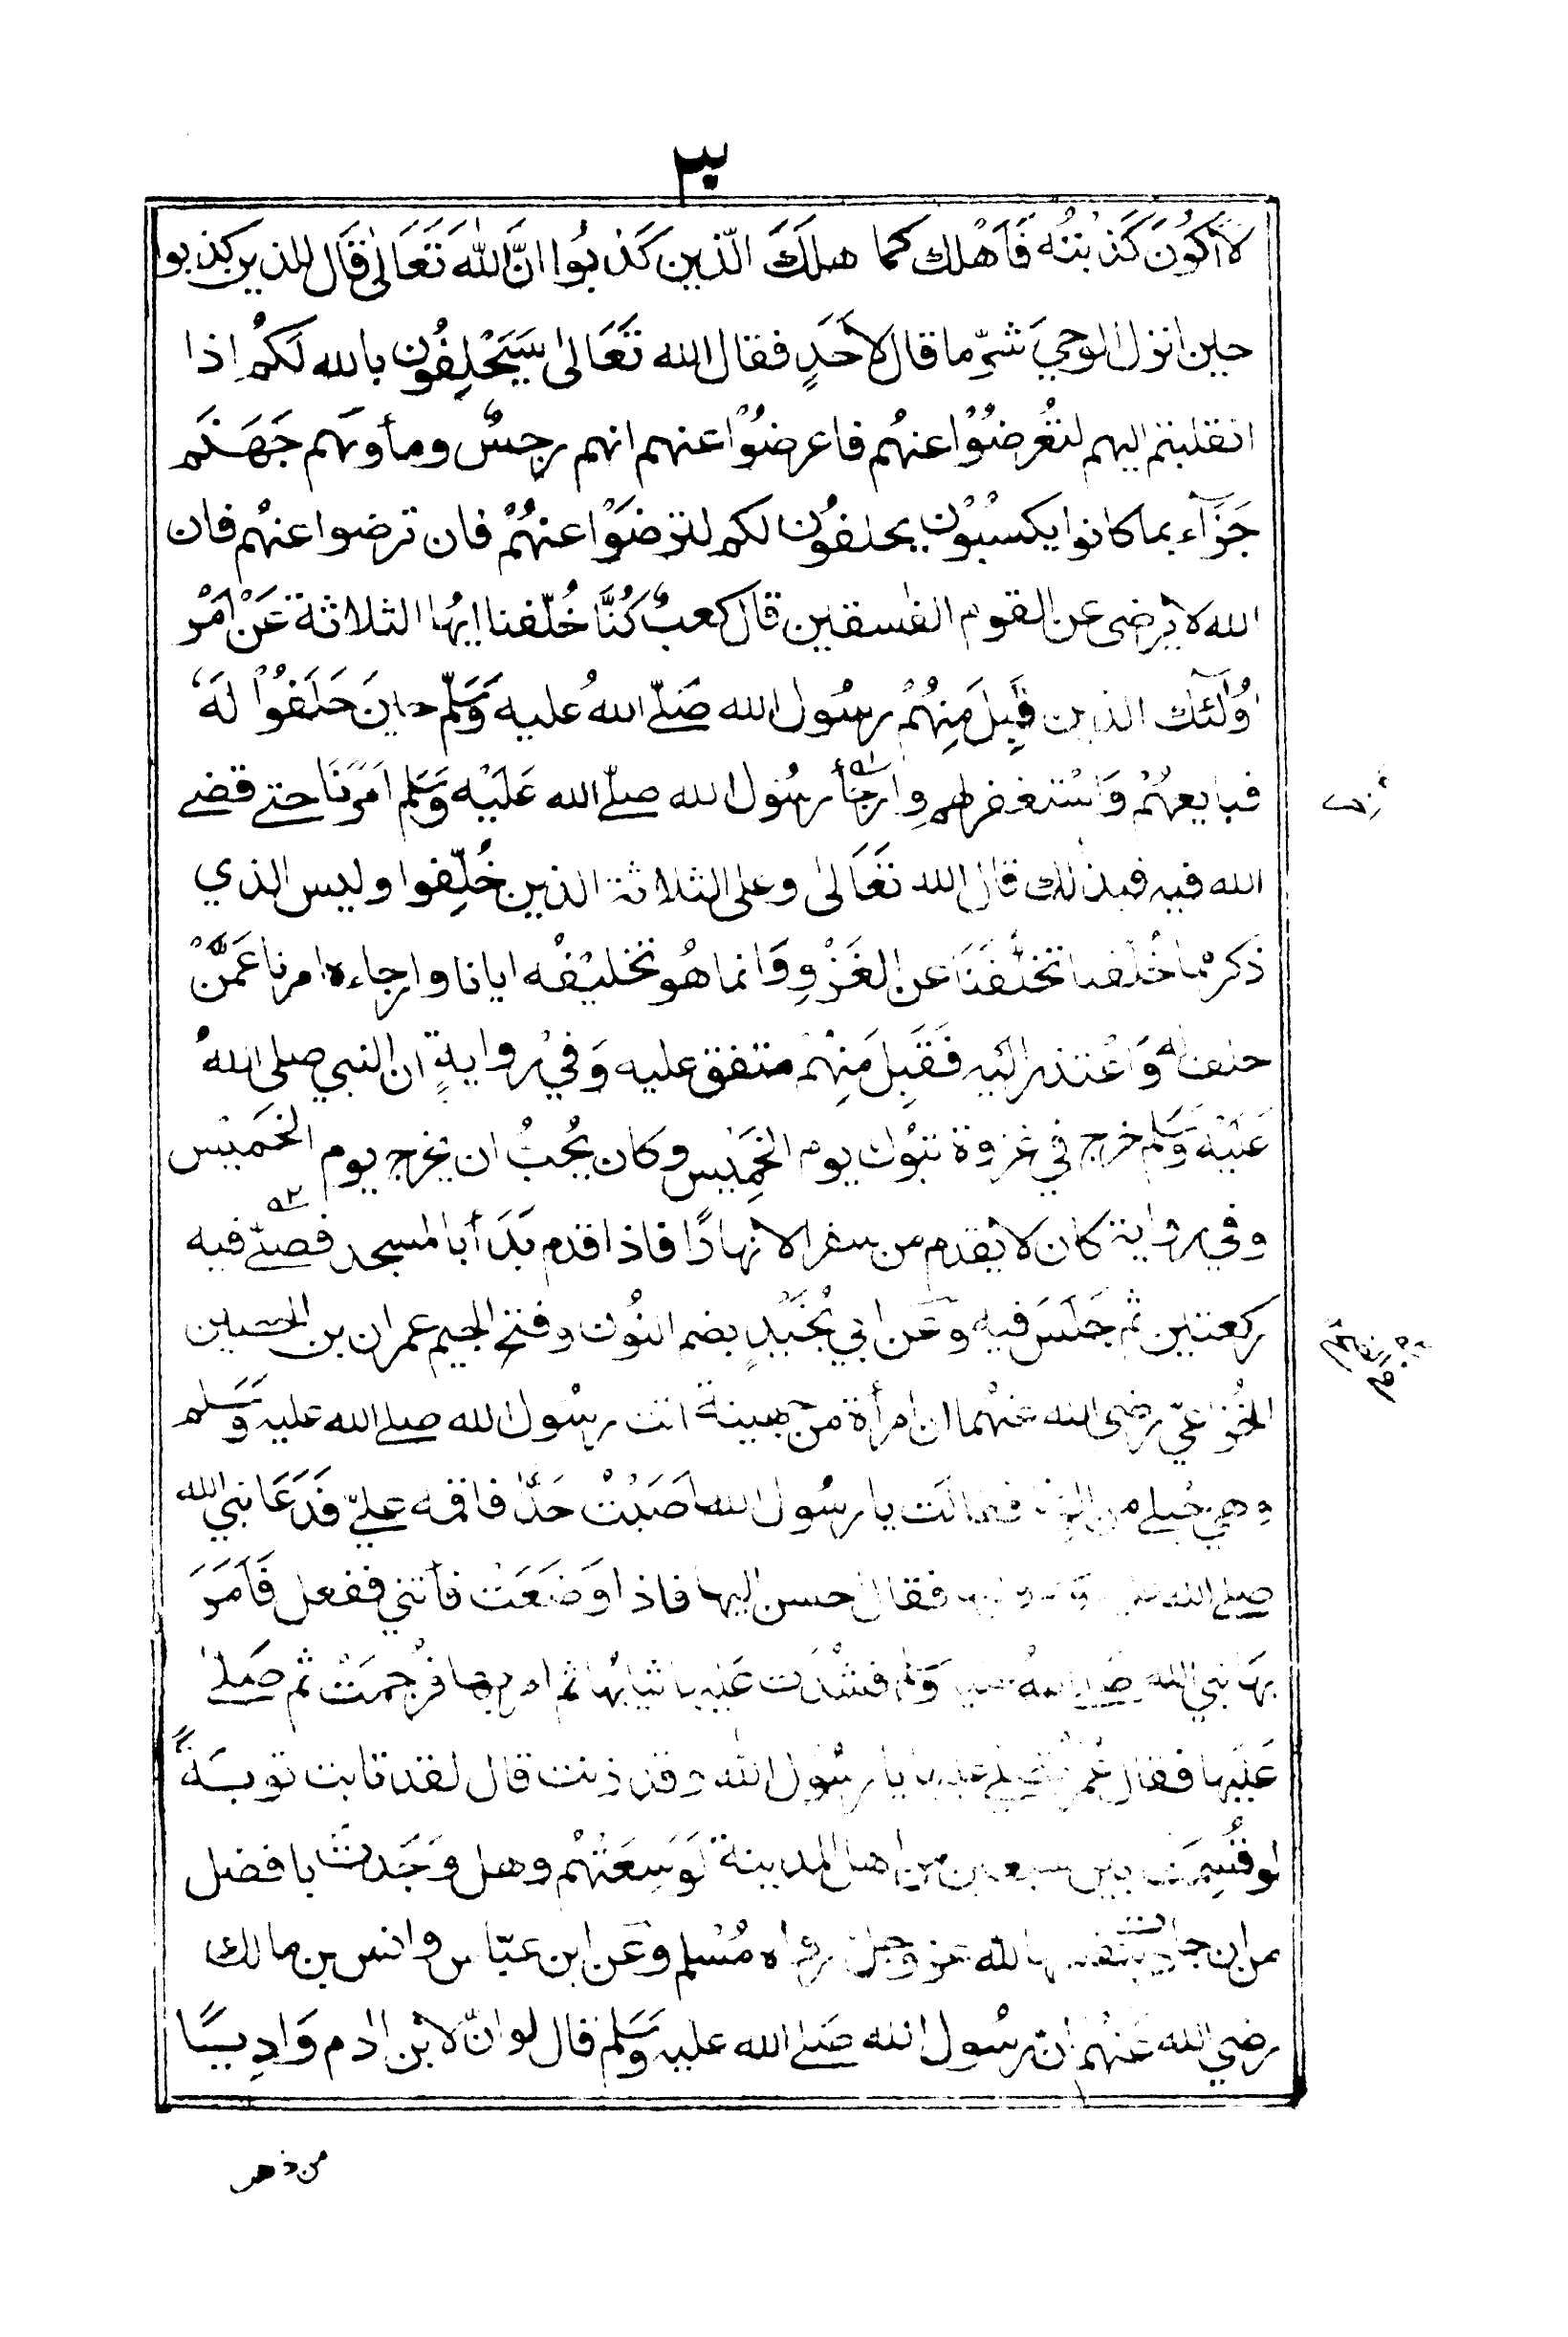 لا اكُوْنَ كَذبتُه فَاَهْلك كما هلَكَ الّذين كَذبُوا انَّ اللهَ تَعَالٰى قَال للذين كذبوا
حين انزل الوحيَ شرّ ما قال لاَحَدٍ فقال الله تَعَالٰى سَيَحْلِفُون بالله لَكمُ اِذا
انقلبتم اليهم لتُعْرِضُوْا عنهُم فاعرضُوْا عنهم انهم رجسٌ ومأوٰىهم جَهَنَم
جَزَآء بما كانوا يكسبُوْن يحلفُون لكم لترضَوْا عنهُمْ فان ترضوا عنهُم فان
الله لا يرضى عن القوم الفٰسقين قال كعبٌ كُنَّا خُلّفنا ايُها الثلاثة عَنْ اَمْر
اُولٰٓئك الذين قَبِلَ مِنهُمْ رسُول الله صَلّى اللهُ عليه وَسَلّم حينَ حَلَفُوْا لَهٗ
فبايعهُمْ وَاسْتغفر لهم وارجأ رسُول الله صلّى الله عَلَيْه وَسَلم اَمرَنا حتى قضى
الله فيه فبذٰلك قال الله تَعَالٰى وعلى الثلاثة الذين خُلِّفوا وليس الذي
ذَكر مما خُلّفنا تخلُّفَنَا عن الغَزْوِ وَانما هُو تخليفُه ايانا وارجاءه امرنا عَمَّنْ
حلف له وَاعْتذر اليه فَقَبِل مِنهُمْ متفق عليه وَفيْ روايةٍ ان النبي صلى اللهُ
عَلَيْه وَسَلم خرج في غزوة تبُوْك يوم الخَمِيْس وكان يُحبُ ان يخرج يوم الخَمِيْس
وفي رواية كان لا يقدم من سفر الا نهارًا فاذا قدم بَدَأ بالمسجد فصلّى فيه
ركعتين ثم جَلَسَ فيه وعَن ابي نُجَيْدٍ بضم النُون وفتح الجيم عمران بن الحصين
الخُزاعيّ رضى الله عنهُما ان امرأة من جهينة اتت رسُول الله صلى الله عليه وَسَلم
وهي حُبلى من الزنا فقالَت يا رسُول الله اَصَبْتْ حَدًّا فاقمه عليّ فَدَعَا نبي الله
صلى الله فقال احسن اليها فاذا وَضَعَتْ فأتني ففعل فَاَمَرَ
بهَا نبي الله صَلى اللهُ عليه وَسَلم فشُدّت عَليها ثيابُها ثم امر بها فرُجمَتْ ثم صَلىٰ
عَلَيْها فقال عُمَرُ تصلي عليها يا رسُول الله وقد زنت قال لقد تابت توبَةً
لو قُسِمَت بين سبعين من اهل المدينة لَوَسِعَتْهُم وهل وَجَدتَ بافضل
من ان جادت بنفسها لله عز وجل رواه مُسْلم وعَن ابن عبّاس وانس بن مالك
رضي الله عَنهُم انّ رسُول الله صَلى الله عليه وَسَلم قال لو انّ لابْن اٰدم وَادِيًا
من ذهب